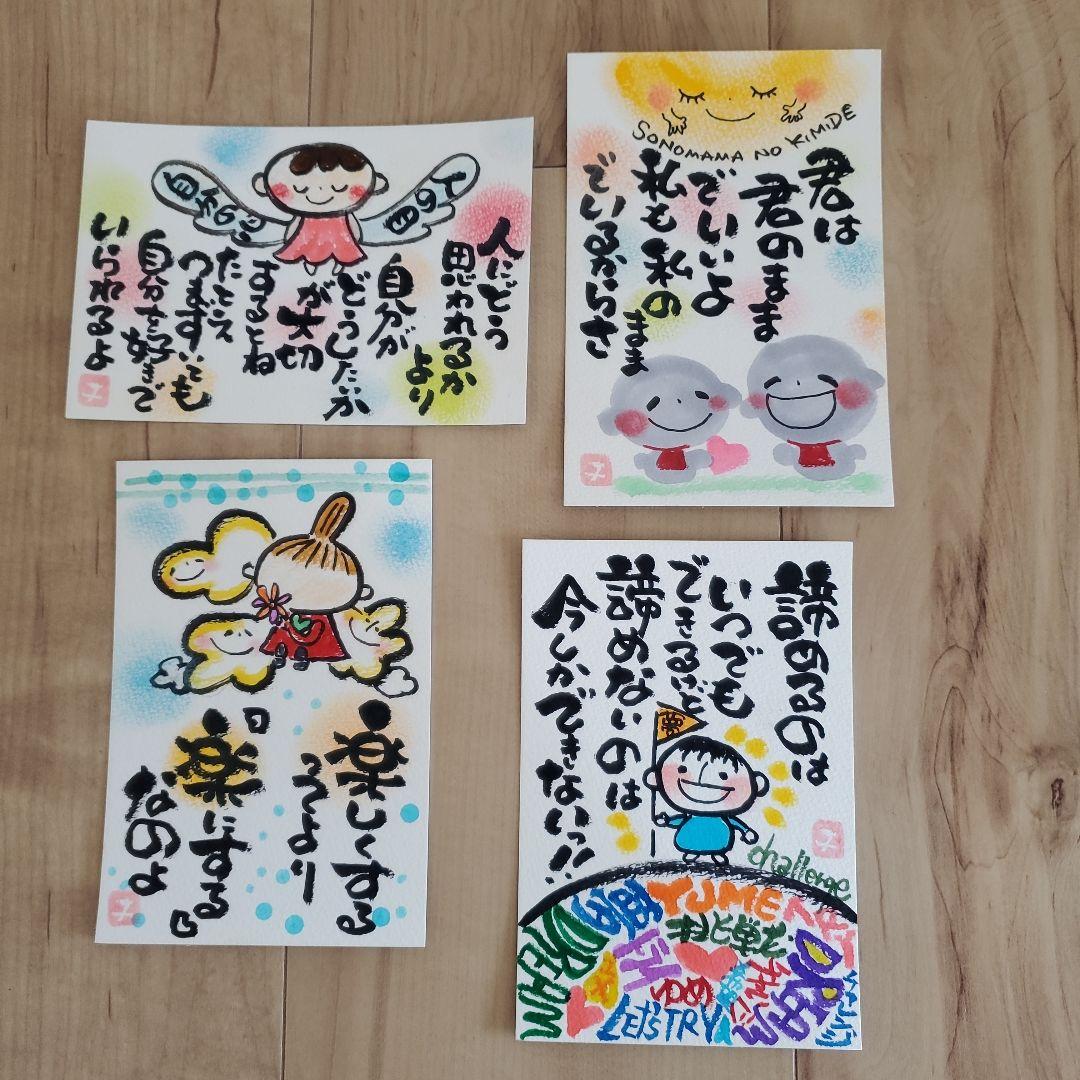 人にどう
思われるか
より
自分が
どうしたいか
が大切
するとね
たとえ
つまずいても
自分を好きで
いられるよ
SONOMAMA NO KIMIDE
君は
君のまま
でいいよ
私も私の
まま
でいるからさ
楽しくする
つより
『楽にする
なのよ』
諦めるのは
いつでも
できるけど
諦めないのは
今しかできないっ!!
challenge
YUME
DREAM
ゆめ
LET'S TRY